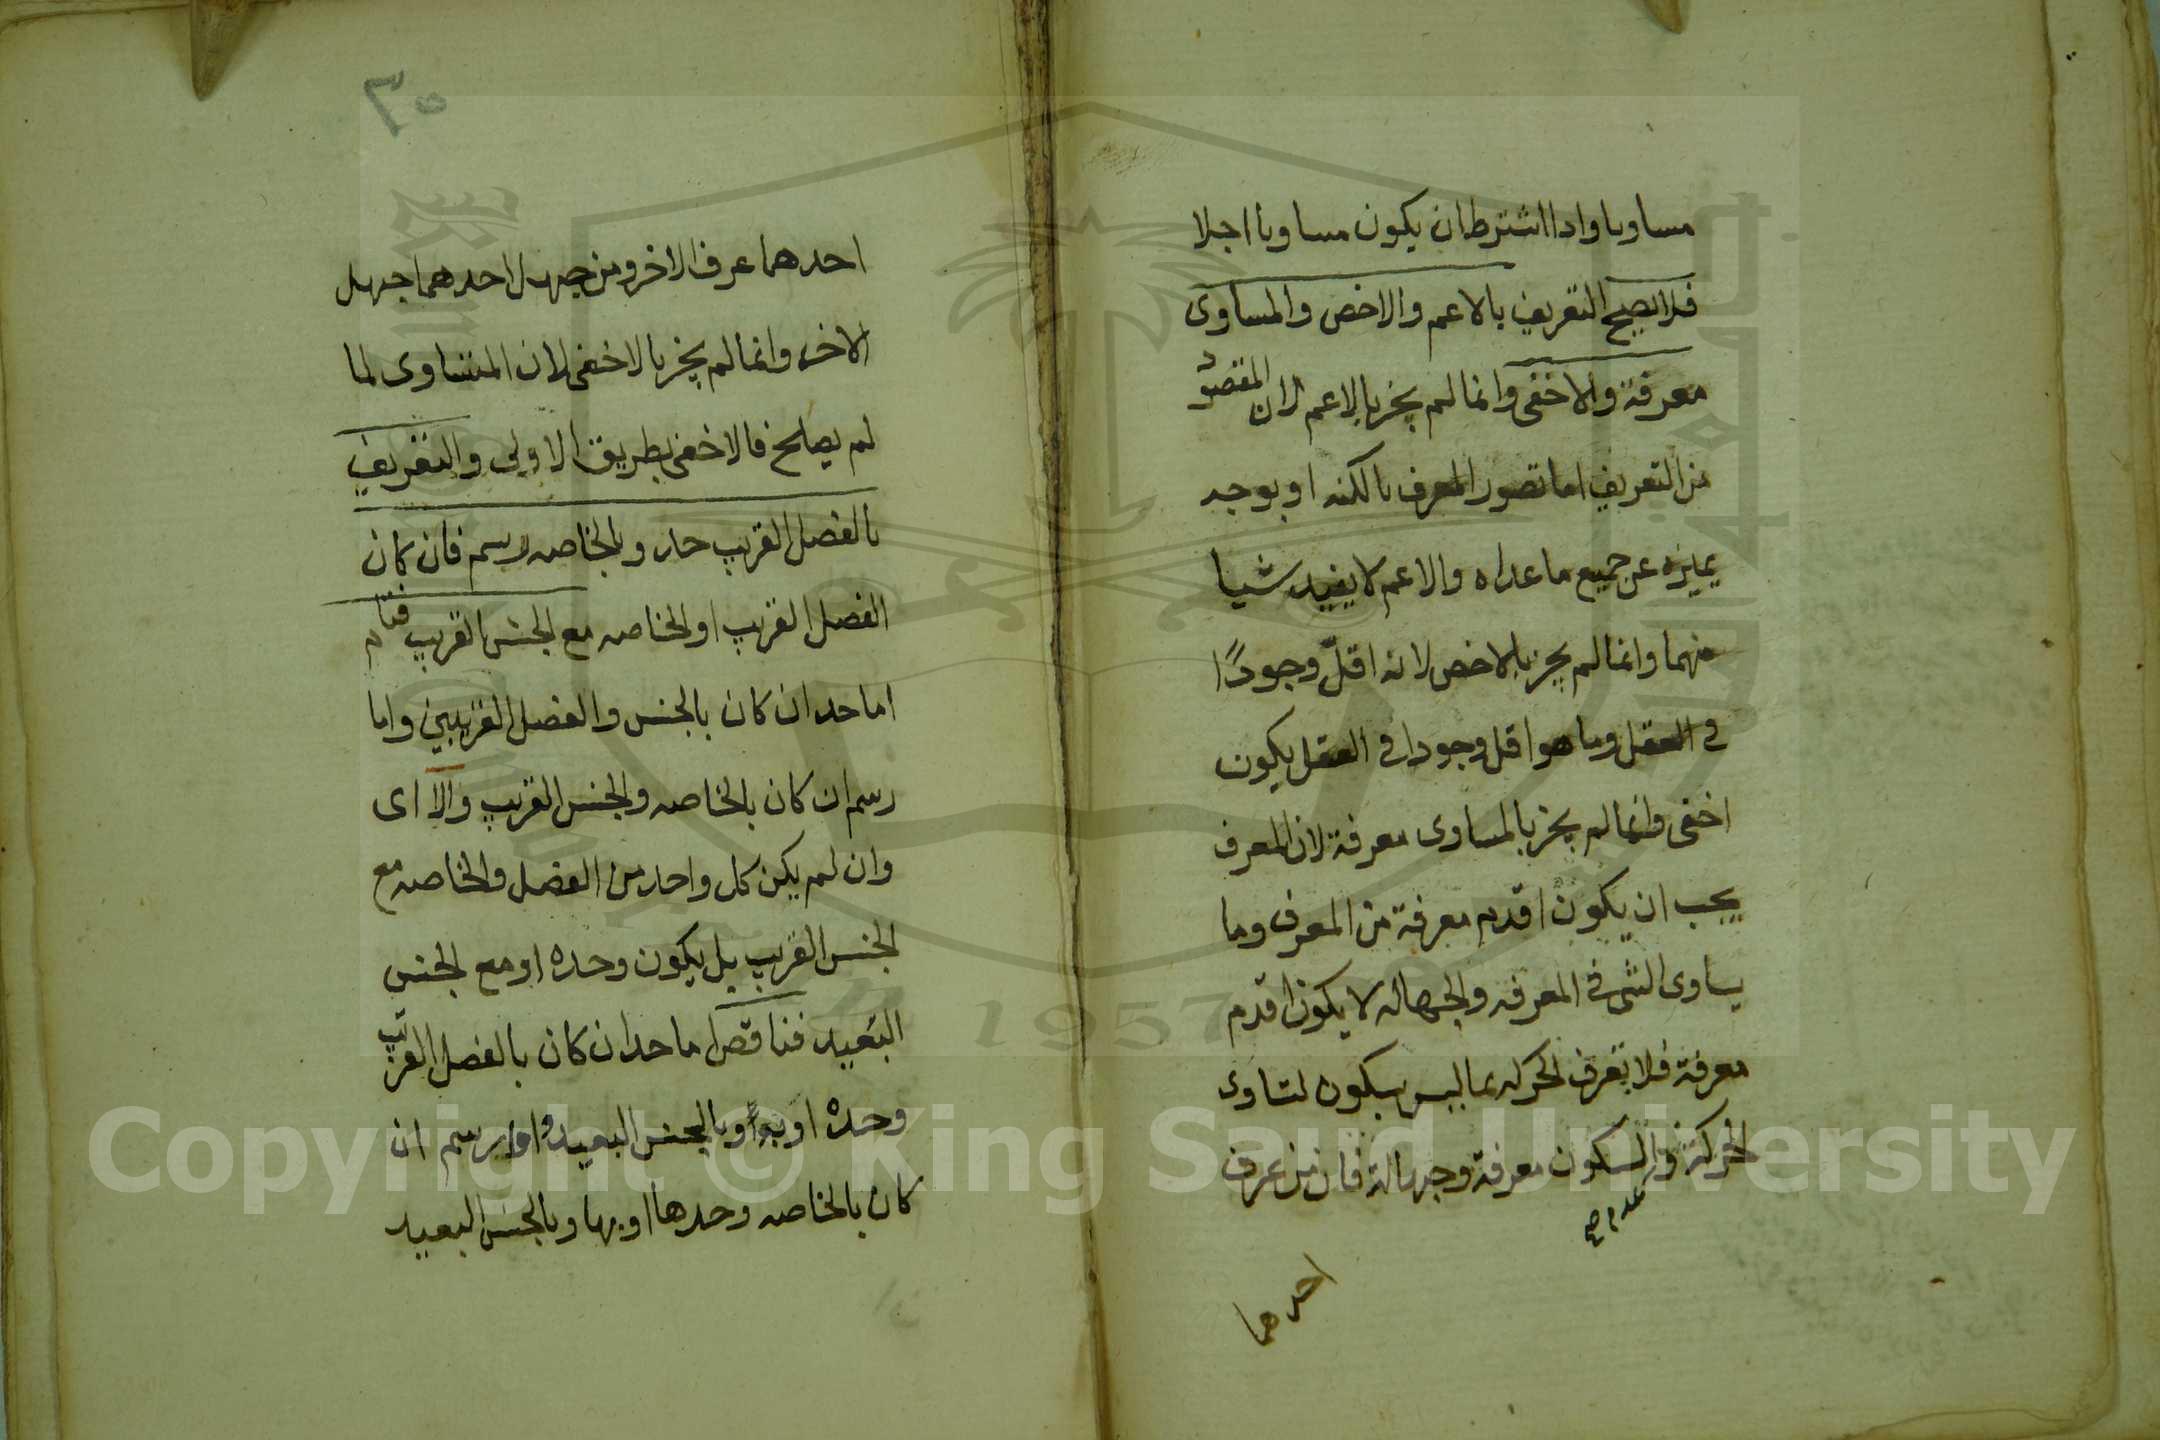 مساويا واذا اشترط ان يكون مساويا اجلا
فلا يصح التعريف بالاعم والاخص والمساوى
معرفة والاخفى وانما لم يجز بالاعم لان المقصود
من التعريف اما تصور المعرف بالكنه او بوجه
يميزه عن جميع ما عداه والاعم لا يفيد شيا
منهما وانما لم يجز بالاخص لانه اقلّ وجودًا
فى العقل وما هو اقل وجودا فى العقل يكون
اخفى وانما لم يجز بالمساوى معرفة لان المعرف
يجب ان يكون اقدم معرفة من المعرف وما
يساوى الشى فى المعرفه والجهاله لا يكون اقدم
معرفة فلا يعرف الحركه بما ليس بسكون لتساوى
الحركة والسكون معرفة وجهالة فان من عرف
عدم صح
احدهما
٣٥
احدهما عرف الاخر ومن جهل احدهما جهل
الاخر وانما لم يجز بالاخفى لان المتساوى لما
لم يصلح فالاخفى بطريق الاولى والتعريف
بالفصل القريب حد وبالخاصه رسم فان كان
الفصل القريب او الخاصه مع الجنس القريب فتام
اما حد ان كان بالجنس والفصل القريبين واما
رسم ان كان بالخاصه والجنس القريب والا اى
وان لم يكن كل واحد من الفصل والخاصه مع
الجنس القريب بل يكون وحده او مع الجنس
البعيد فناقص اما حد ان كان بالفصل القريب
وحده او به وبالجنس البعيد واما رسم ان
كان بالخاصه وحدها او بها وبالجنس البعيد
Copyright © King Saud University
1957